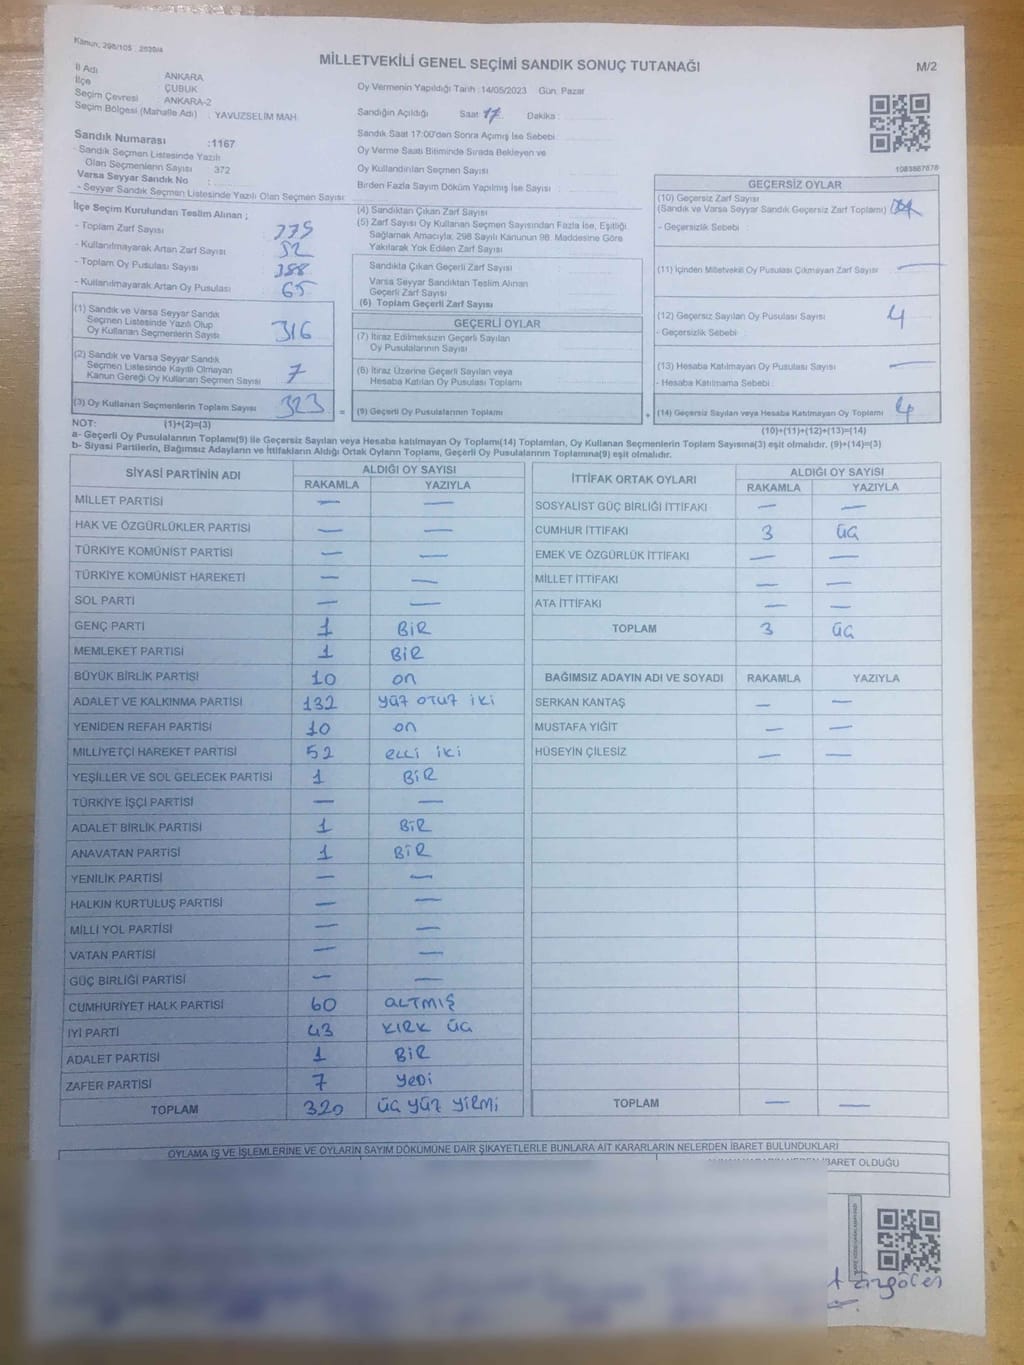 Kanun, 298/105 : 2839/4
MİLLETVEKİLİ GENEL SEÇİMİ SANDIK SONUÇ TUTANAĞI
M/2
İl Adı ANKARA
İlçe ÇUBUK
Seçim Çevresi ANKARA-2
Seçim Bölgesi (Mahalle Adı) : YAVUZSELİM MAH.
Oy Vermenin Yapıldığı Tarih :14/05/2023 Gün: Pazar
Sandığın Açıldığı Saat: 17 Dakika :
Sandık Saat 17:00'den Sonra Açımış İse Sebebi
Oy Verme Saati Bitiminde Sırada Bekleyen ve
Oy Kullandırılan Seçmen Sayısı
Birden Fazla Sayım Döküm Yapılmış İse Sayısı
Sandık Numarası :1167
- Sandık Seçmen Listesinde Yazılı
Olan Seçmenlerin Sayısı 372
Varsa Seyyar Sandık No :
- Seyyar Sandık Seçmen Listesinde Yazılı Olan Seçmen Sayısı :
İlçe Seçim Kurulundan Teslim Alınan ;
- Toplam Zarf Sayısı : 375
- Kullanılmayarak Artan Zarf Sayısı : 52
- Toplam Oy Pusulası Sayısı : 388
- Kullanılmayarak Artan Oy Pusulası : 65
(1) Sandık ve Varsa Seyyar Sandık
Seçmen Listesinde Yazılı Olup
Oy Kullanan Seçmenlerin Sayısı 316
(2) Sandık ve Varsa Seyyar Sandık
Seçmen Listesinde Kayıtlı Olmayan
Kanun Gereği Oy Kullanan Seçmen Sayısı 7
(3) Oy Kullanan Seçmenlerin Toplam Sayısı 323 =
(4) Sandıktan Çıkan Zarf Sayısı
(5) Zarf Sayısı Oy Kullanan Seçmen Sayısından Fazla İse, Eşitliği
Sağlamak Amacıyla; 298 Sayılı Kanunun 98. Maddesine Göre
Yakılarak Yok Edilen Zarf Sayısı
Sandıkta Çıkan Geçerli Zarf Sayısı
Varsa Seyyar Sandıktan Teslim Alınan
Geçerli Zarf Sayısı
(6) Toplam Geçerli Zarf Sayısı
GEÇERLİ OYLAR
(7) İtiraz Edilmeksizin Geçerli Sayılan
Oy Pusulalarının Sayısı
(8) İtiraz Üzerine Geçerli Sayılan veya
Hesaba Katılan Oy Pusulası Toplamı
(9) Geçerli Oy Pusulalarının Toplamı +
1083887878
GEÇERSİZ OYLAR
(10) Geçersiz Zarf Sayısı
(Sandık ve Varsa Seyyar Sandık Geçersiz Zarf Toplamı)
- Geçersizlik Sebebi :
(11) İçinden Milletvekili Oy Pusulası Çıkmayan Zarf Sayısı —
(12) Geçersiz Sayılan Oy Pusulası Sayısı 4
- Geçersizlik Sebebi :
(13) Hesaba Katılmayan Oy Pusulası Sayısı —
- Hesaba Katılmama Sebebi :
(14) Geçersiz Sayılan veya Hesaba Katılmayan Oy Toplamı 4
NOT: (1)+(2)=(3)
(10)+(11)+(12)+(13)=(14)
a- Geçerli Oy Pusulalarının Toplamı(9) ile Geçersiz Sayılan veya Hesaba katılmayan Oy Toplamı(14) Toplamları, Oy Kullanan Seçmenlerin Toplam Sayısına(3) eşit olmalıdır. (9)+(14)=(3)
b- Siyasi Partilerin, Bağımsız Adayların ve İttifakların Aldığı Ortak Oyların Toplamı, Geçerli Oy Pusulalarının Toplamına(9) eşit olmalıdır.
SİYASİ PARTİNİN ADI ALDIĞI OY SAYISI
RAKAMLA YAZIYLA
MİLLET PARTİSİ — —
HAK VE ÖZGÜRLÜKLER PARTİSİ — —
TÜRKİYE KOMÜNİST PARTİSİ — —
TÜRKİYE KOMÜNİST HAREKETİ — —
SOL PARTİ — —
GENÇ PARTİ 1 BİR
MEMLEKET PARTİSİ 1 BİR
BÜYÜK BİRLİK PARTİSİ 10 on
ADALET VE KALKINMA PARTİSİ 132 yüz otuz iki
YENİDEN REFAH PARTİSİ 10 on
MİLLİYETÇİ HAREKET PARTİSİ 52 elli iki
YEŞİLLER VE SOL GELECEK PARTİSİ 1 BİR
TÜRKİYE İŞÇİ PARTİSİ — —
ADALET BİRLİK PARTİSİ 1 BİR
ANAVATAN PARTİSİ 1 BİR
YENİLİK PARTİSİ — —
HALKIN KURTULUŞ PARTİSİ — —
MİLLİ YOL PARTİSİ — —
VATAN PARTİSİ — —
GÜÇ BİRLİĞİ PARTİSİ — —
CUMHURİYET HALK PARTİSİ 60 ALTMIŞ
İYİ PARTİ 43 KIRK ÜÇ
ADALET PARTİSİ 1 BİR
ZAFER PARTİSİ 7 yedi
TOPLAM 320 üç yüz yirmi
İTTİFAK ORTAK OYLARI ALDIĞI OY SAYISI
RAKAMLA YAZIYLA
SOSYALİST GÜÇ BİRLİĞİ İTTİFAKI — —
CUMHUR İTTİFAKI 3 üç
EMEK VE ÖZGÜRLÜK İTTİFAKI — —
MİLLET İTTİFAKI — —
ATA İTTİFAKI — —
TOPLAM 3 üç
BAĞIMSIZ ADAYIN ADI VE SOYADI RAKAMLA YAZIYLA
SERKAN KANTAŞ — —
MUSTAFA YİĞİT — —
HÜSEYİN ÇİLESİZ — —
TOPLAM — —
OYLAMA İŞ VE İŞLEMLERİNE VE OYLARIN SAYIM DÖKÜMÜNE DAİR ŞİKAYETLERLE BUNLARA AİT KARARLARIN NELERDEN İBARET BULUNDUKLARI
İBARET OLDUĞU